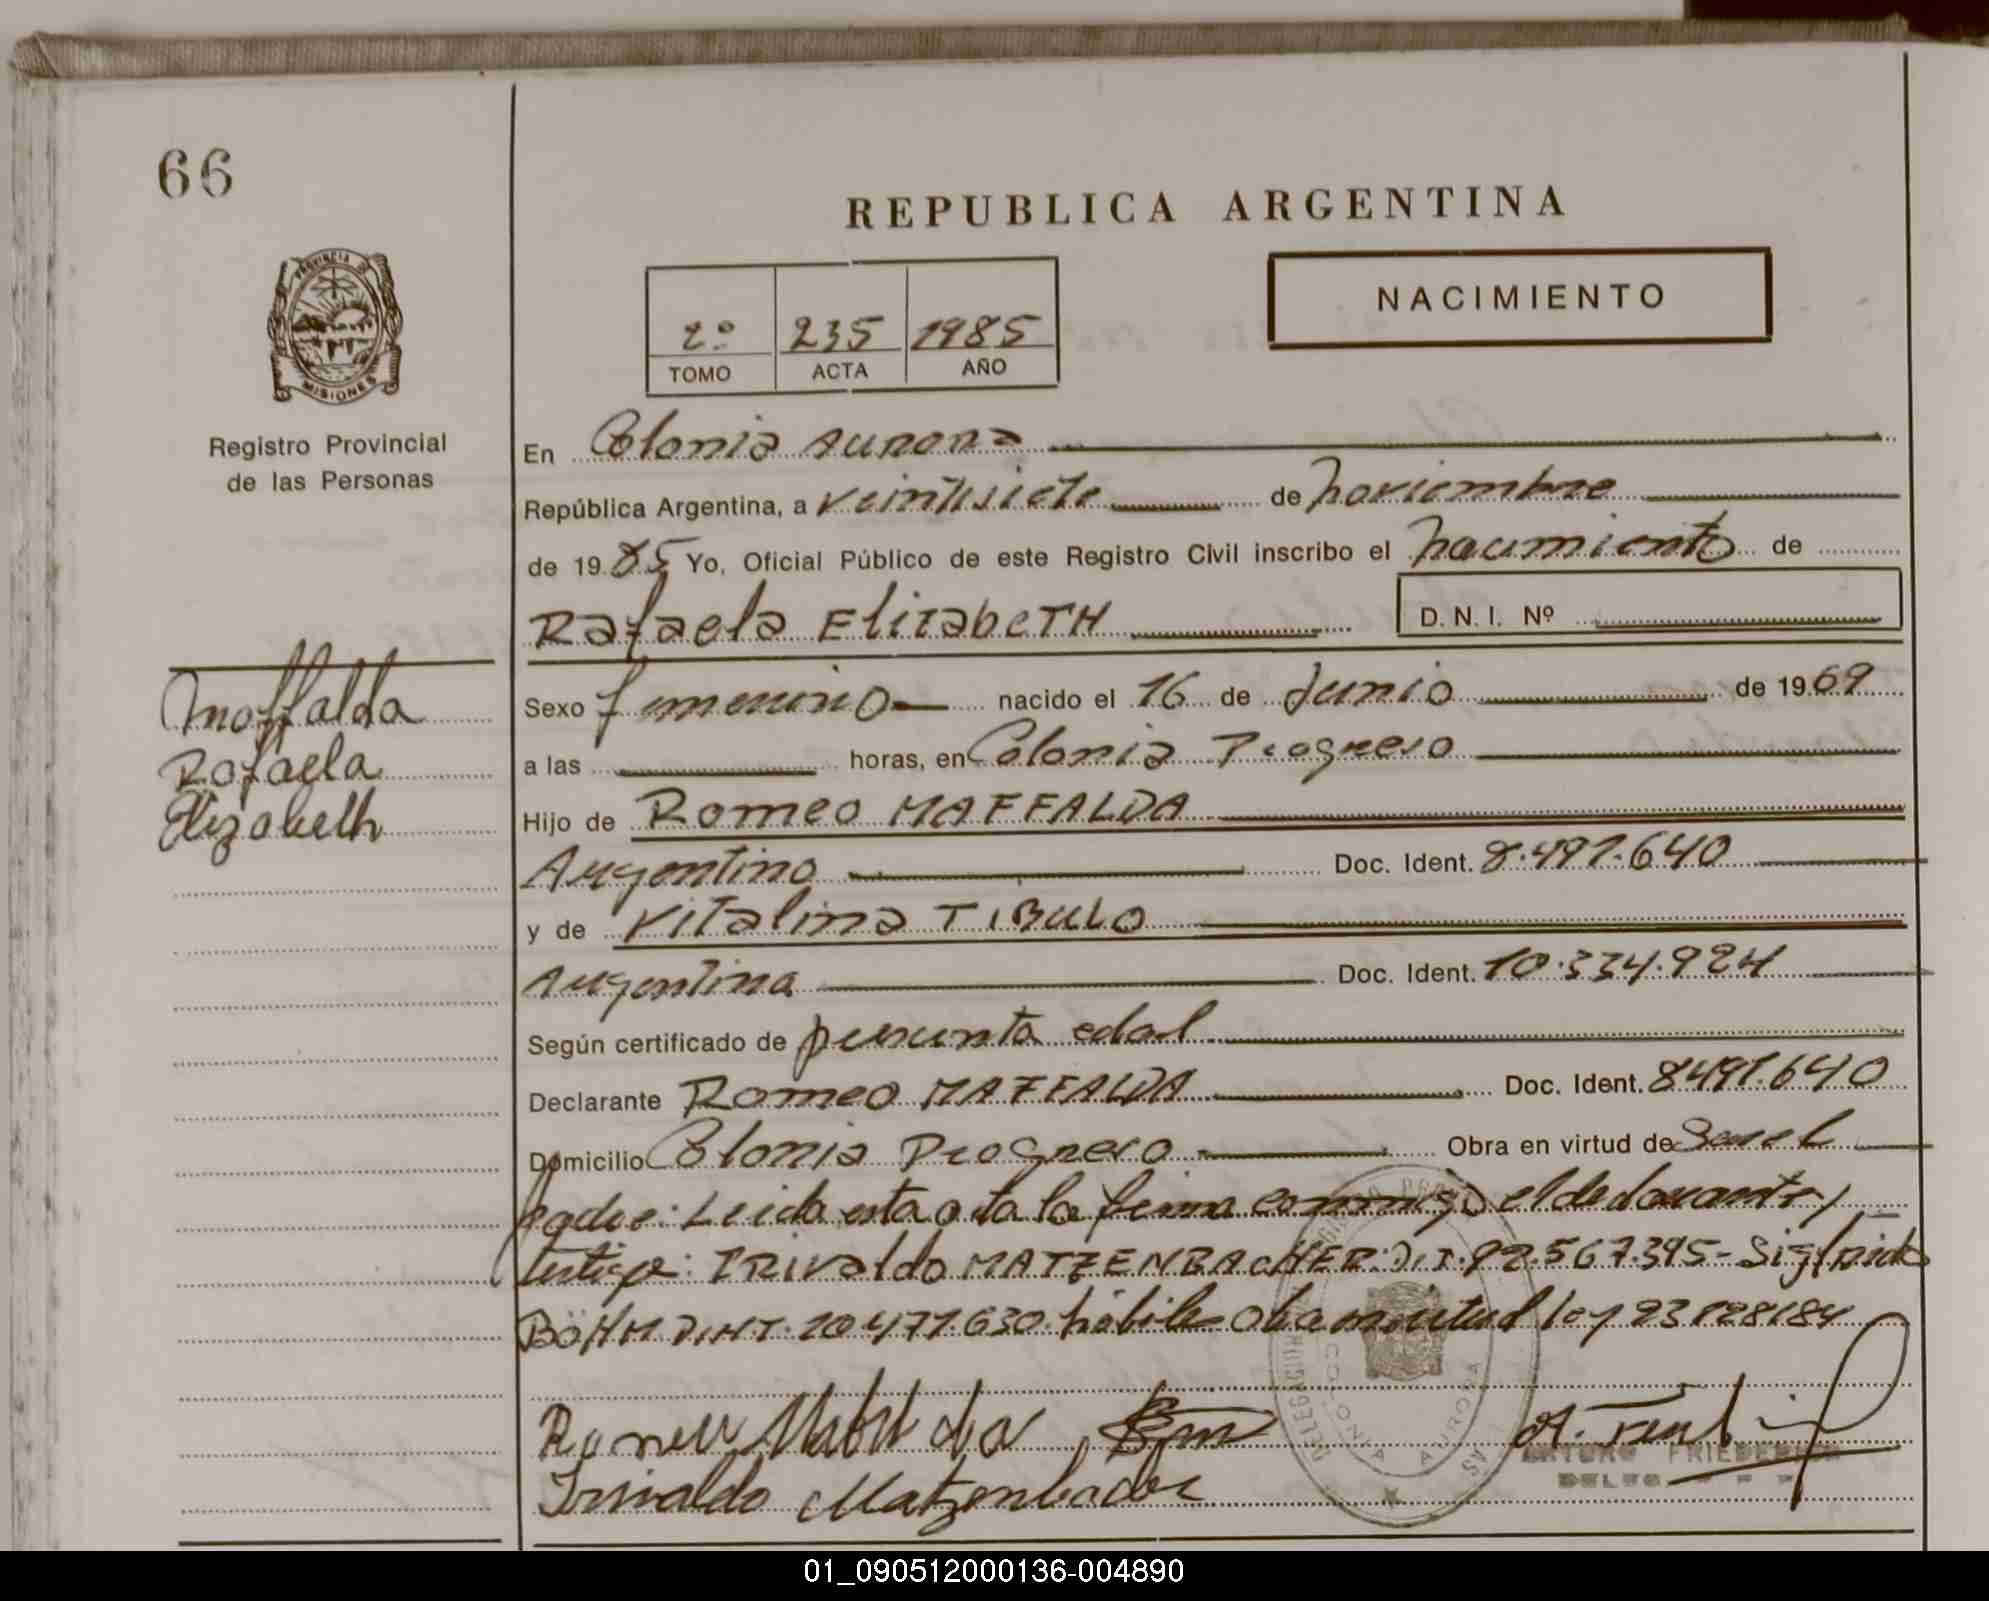 66
REPUBLICA ARGENTINA
PROVINCIA DE
MISIONES
Registro Provincial
de las Personas
2º 235 1985
TOMO ACTA AÑO
NACIMIENTO
En Colonia Aurora
República Argentina, a veintisiete de noviembre
de 1985 Yo, Oficial Público de este Registro Civil inscribo el nacimiento de
Rafaela ElizabeTH D.N.I. Nº
Maffalda
Rafaela
Elizabeth
Sexo femenino nacido el 16 de Junio de 1969
a las horas, en Colonia Progreso
Hijo de Romeo MAFFALDA
Argentino Doc. Ident. 8.497.640
y de Vitalina TIBULO
Argentina Doc. Ident. 10.334.924
Según certificado de presunta edad
Declarante Romeo MAFFALDA Doc. Ident. 8497.640
Domicilio Colonia Progreso Obra en virtud de
padre: Leida esta acta la firma conmigo el declarante y
testigo: IRIValdo MATZENBACHER: D.I. 92.567.395- Sigfrido
BöHM D.N.I. 10.471.630 hábiles Obra en virtud ley 23128/84
COLONIA AURORA
Irivaldo Matzenbacher
ARTURO
01_090512000136-004890